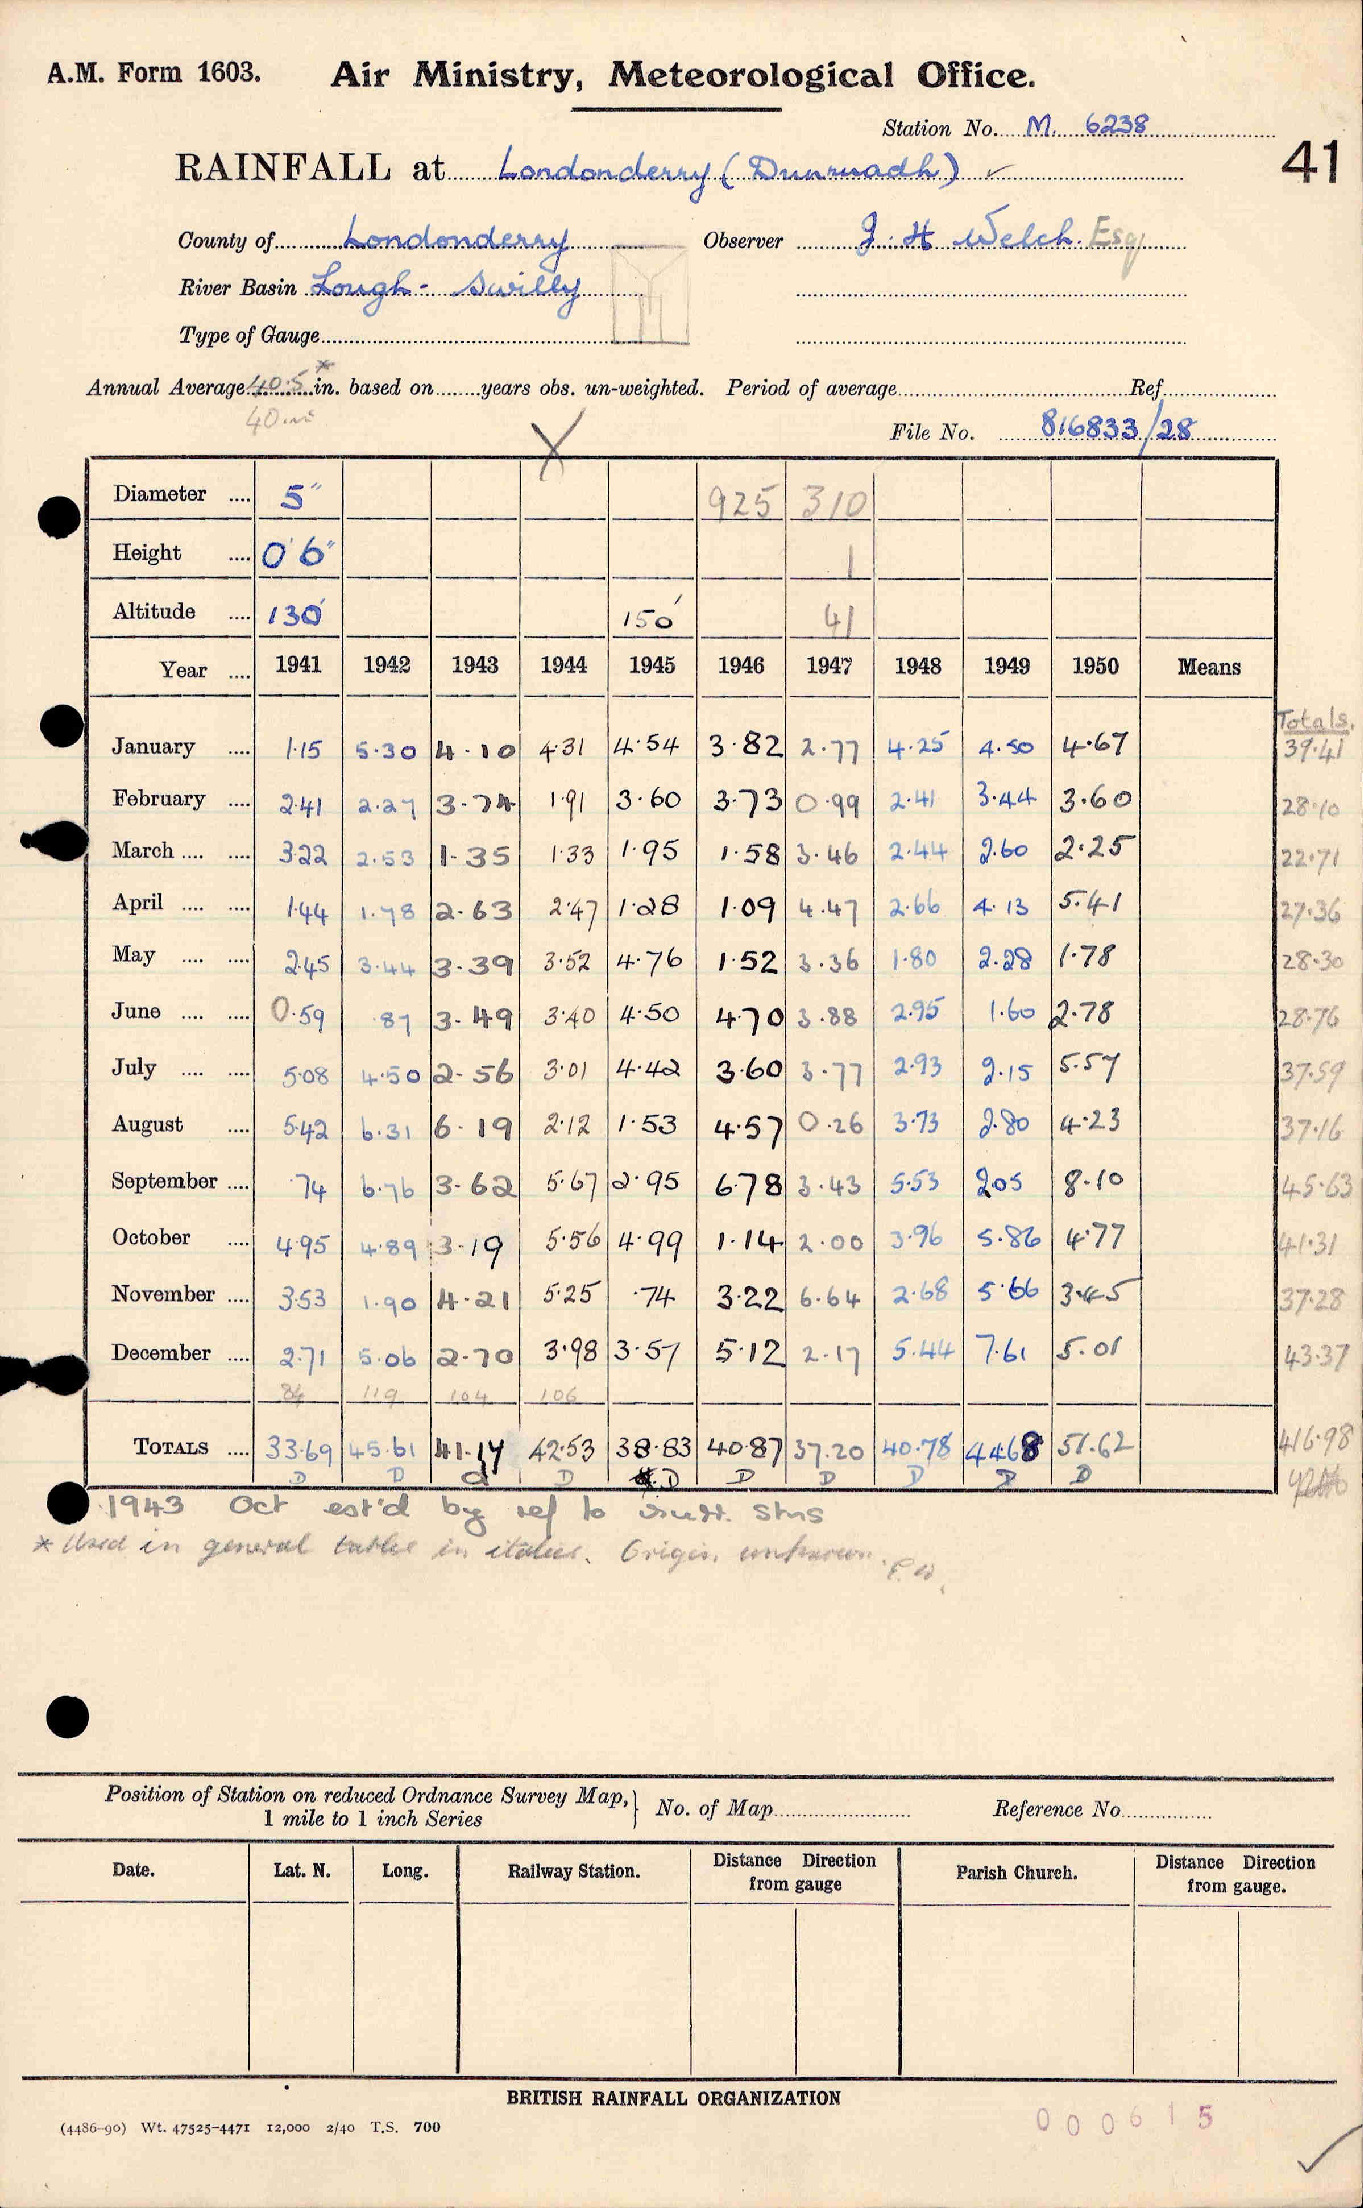 A.M. Form 1603. Air Ministry, Meteorological Office.
Station No. M. 6238
41
RAINFALL at Londonderry (Dunruadh)
County of Londonderry Observer J. H Welch. Esq
River Basin Lough - Swilly
Type of Gauge
Annual Average 40.5* in. based on years obs. un-weighted. Period of average Ref.
40 in
File No. 816833/28
X
Diameter 5" 925 310
Height 0' 6" 1
Altitude 130' 150' 41
Year 1941 1942 1943 1944 1945 1946 1947 1948 1949 1950 Means
Totals.
January 1.15 5.30 4.10 4.31 4.54 3.82 2.77 4.25 4.50 4.67 39.41
February 2.41 2.27 3.74 1.91 3.60 3.73 0.99 2.41 3.44 3.60 28.10
March 3.22 2.53 1.35 1.33 1.95 1.58 3.46 2.44 2.60 2.25 22.71
April 1.44 1.78 2.63 2.47 1.28 1.09 4.47 2.66 4.13 5.41 27.36
May 2.45 3.44 3.39 3.52 4.76 1.52 3.36 1.80 2.28 1.78 28.30
June 0.59 .87 3.49 3.40 4.50 4.70 3.88 2.95 1.60 2.78 28.76
July 5.08 4.50 2.56 3.01 4.42 3.60 3.77 2.93 2.15 5.57 37.59
August 5.42 6.31 6.19 2.12 1.53 4.57 0.26 3.73 2.80 4.23 37.16
September .74 6.76 3.62 5.67 2.95 6.78 3.43 5.53 2.05 8.10 45.63
October 4.95 4.89 3.19 5.56 4.99 1.14 2.00 3.96 5.86 4.77 41.31
November 3.53 1.90 4.21 5.25 .74 3.22 6.64 2.68 5.66 3.45 37.28
December 2.71 5.06 2.70 3.98 3.57 5.12 2.17 5.44 7.61 5.01 43.37
84 119 104 106
TOTALS 33.69 45.61 41.17 42.53 38.83 40.87 37.20 40.78 44.68 51.62 416.98
D D d D D D D D D D
1943 Oct est'd by ref to surr. stns
* Used in general table in italics. Origin unknown. P.W.
Position of Station on reduced Ordnance Survey Map, } No. of Map Reference No.
1 mile to 1 inch Series
Date. Lat. N. Long. Railway Station. Distance Direction from gauge Parish Church. Distance Direction from gauge.
BRITISH RAINFALL ORGANIZATION
(4486-90) Wt. 47525-4471 12,000 2/40 T.S. 700
000615